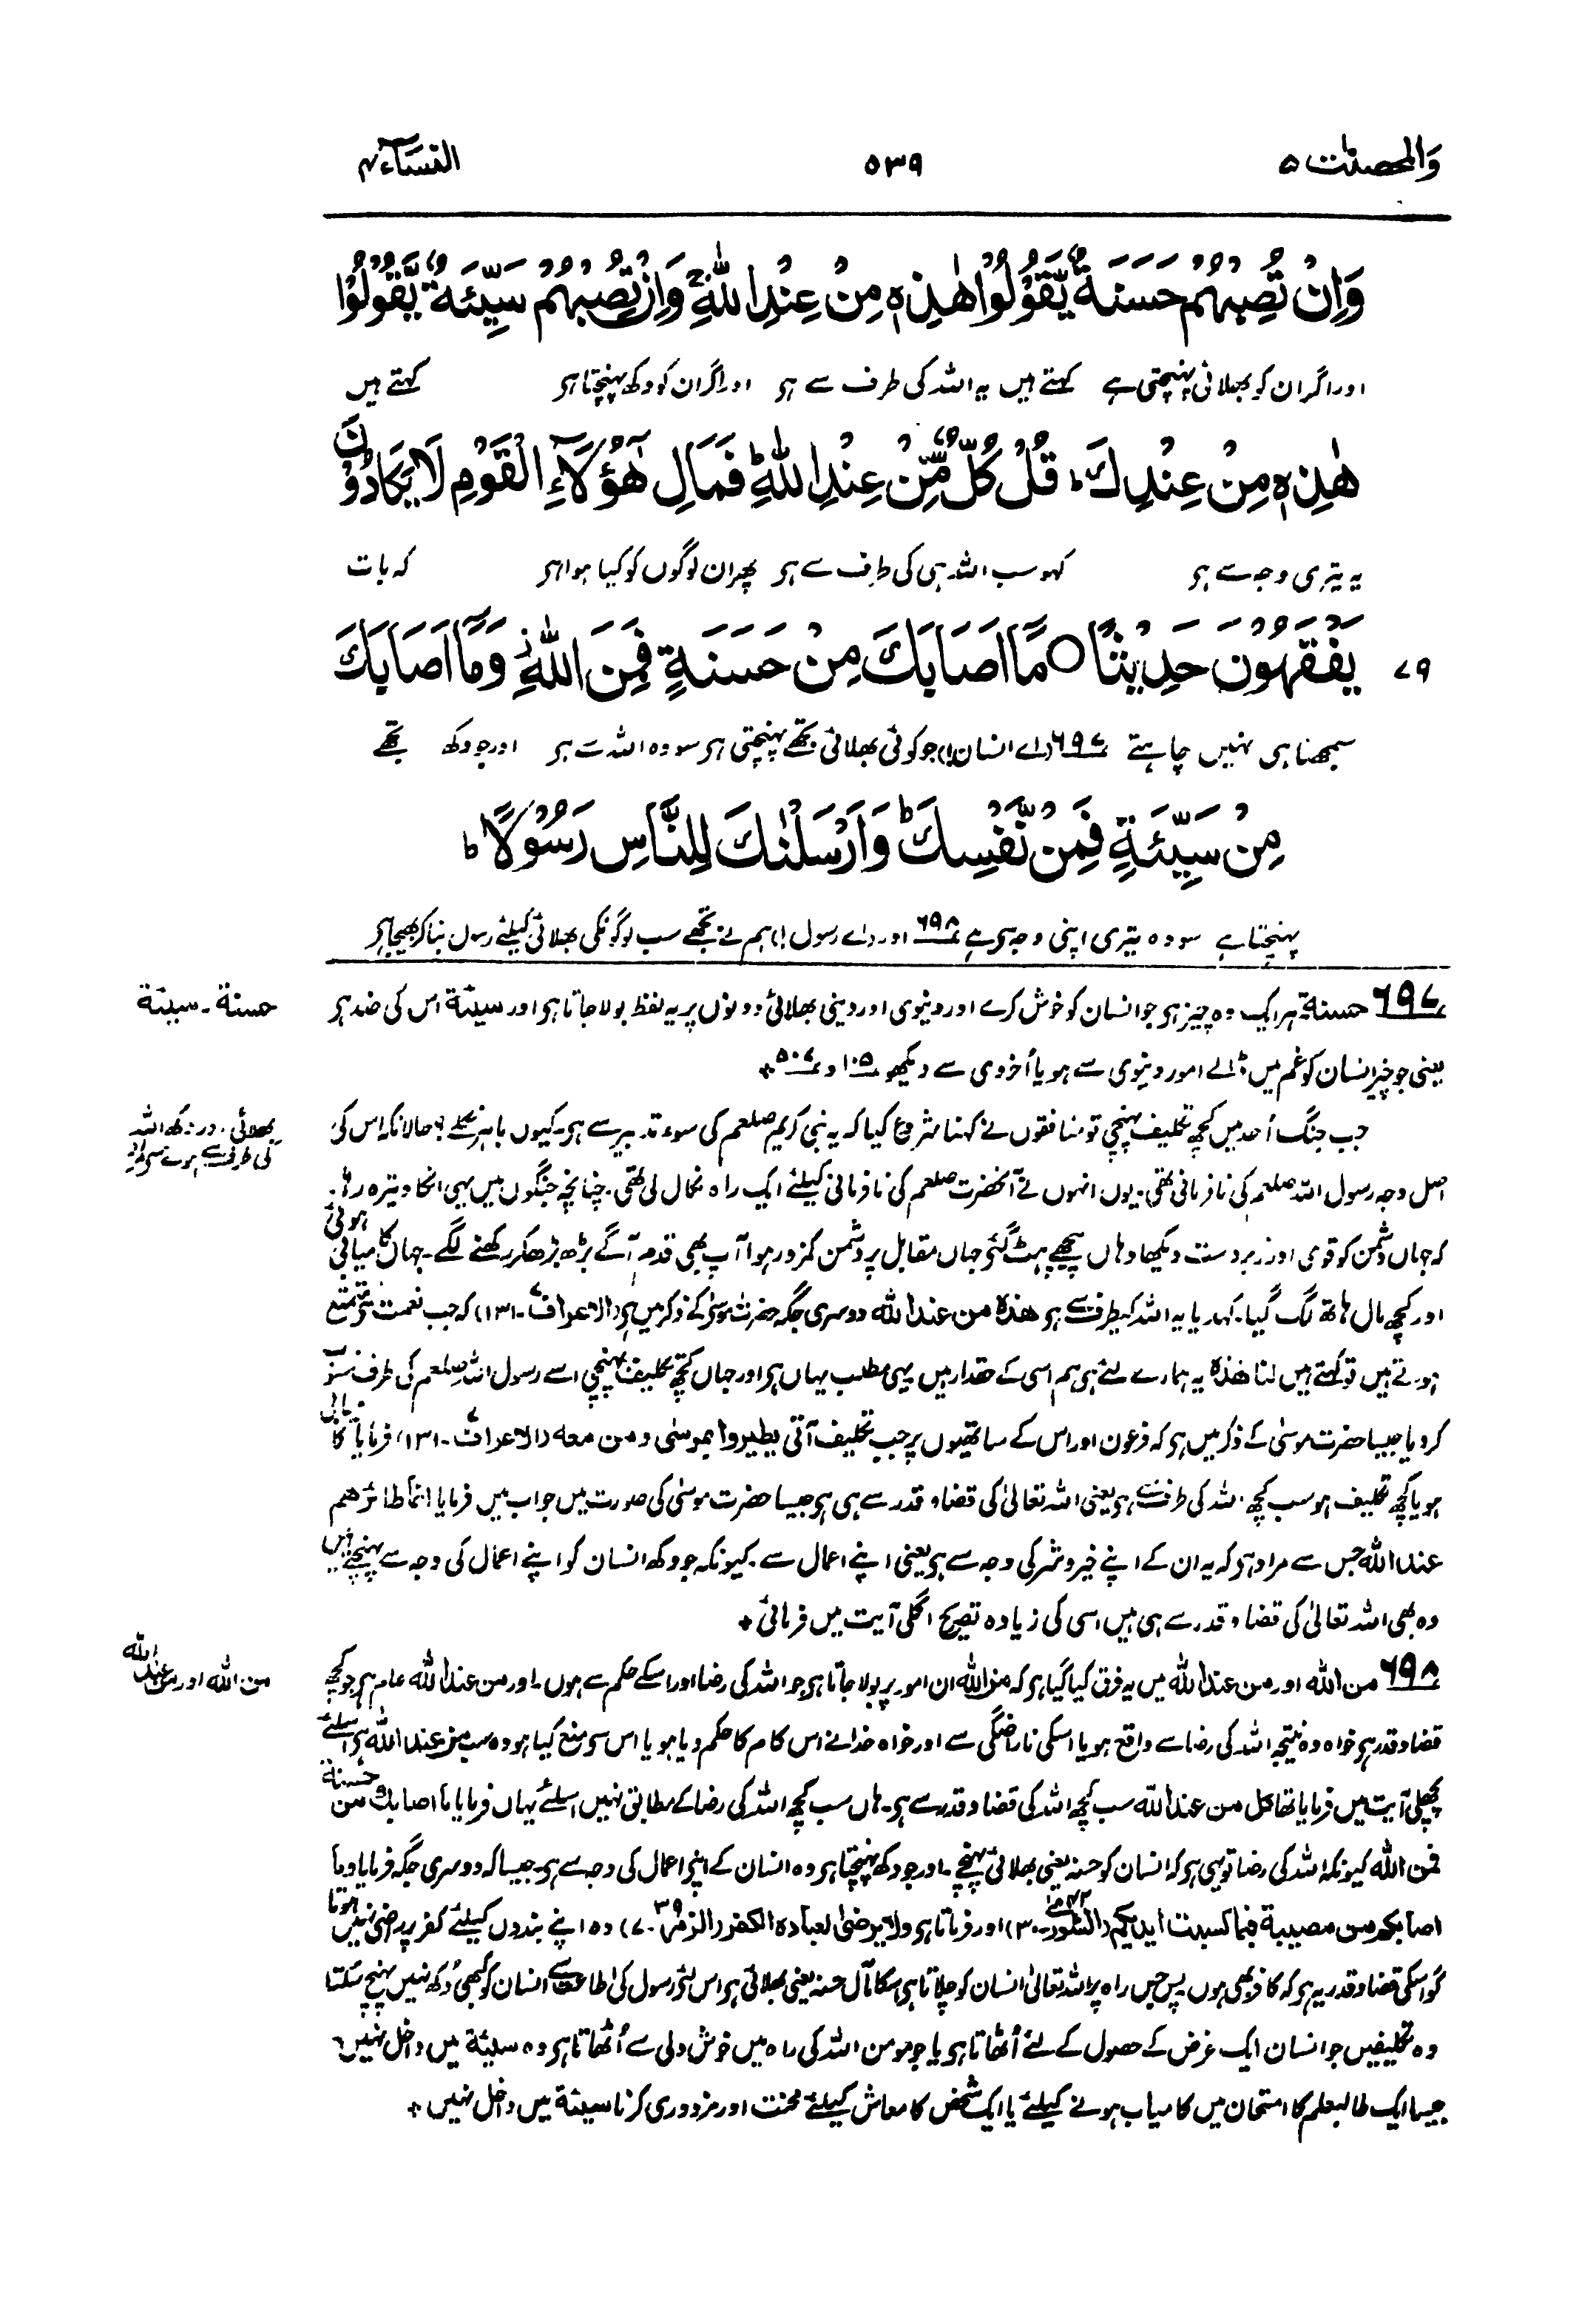 والمحصنٰت ۵
۵۳۹
النساء ۴
وَاِنْ تُصِبْهُمْ حَسَنَةٌ يَّقُوْلُوْا هٰذِهٖ مِنْ عِنْدِ اللّٰهِ ۚ وَاِنْ تُصِبْهُمْ سَيِّئَةٌ يَّقُوْلُوْا
اور اگر ان کو بھلائی پہنچتی ہے کہتے ہیں یہ اللہ کی طرف سے ہو اور اگر ان کو دکھ پہنچتا ہو کہتے ہیں
هٰذِهٖ مِنْ عِنْدِكَ ؕ قُلْ كُلٌّ مِّنْ عِنْدِ اللّٰهِ ؕ فَمَالِ هٰٓؤُلَآءِ الْقَوْمِ لَا يَكَادُوْنَ
یہ تیری وجہ سے ہو کہو سب اللہ ہی کی طرف سے ہو پھر ان لوگوں کو کیا ہوا ہو کہ بات
۷۹
يَفْقَهُوْنَ حَدِيْثًا ○ مَآ اَصَابَكَ مِنْ حَسَنَةٍ فَمِنَ اللّٰهِ ۡ وَمَآ اَصَابَكَ
سمجھنا ہی نہیں چاہتے ۶۹۷ (اے انسان!) جو کوئی بھلائی تجھے پہنچتی ہو سو وہ اللہ سے ہو اور جو دکھ تجھے
مِنْ سَيِّئَةٍ فَمِنْ نَّفْسِكَ ؕ وَاَرْسَلْنٰكَ لِلنَّاسِ رَسُوْلًا ؕ
پہنچتا ہے سو وہ تیری اپنی وجہ سے ہے ۶۹۸ اور (اے رسول!) ہم نے تجھے سب لوگونکی بھلائی کیلئے رسول بنا کر بھیجا ہو
حسنة ۔ سيئة
۶۹۷ حسنة ہر ایک وہ چیز ہو جو انسان کو خوش کرے اور دنیوی اور دینی بھلائی دونوں پر یہ لفظ بولا جاتا ہو اور سيئة اس کی ضد ہو
یعنی جو چیز انسان کو غم میں ڈالے امور دنیوی سے ہو یا اُخروی سے دیکھو ۱۰۵ و ۵۰۷ +
بھلائی اور دکھ اللہ
کی طرف سے ہونے سے مراد
جب جنگ اُحد میں کچھ تکلیف پہنچی تو منافقوں نے کہنا شروع کیا کہ یہ نبی کریم صلعم کی سوء تدبیر سے ہو۔ کیوں باہر نکلے؟ حالانکہ اس کی
اصل وجہ رسول اللہ صلعم کی نافرمانی تھی۔ یوں انہوں نے آنحضرت صلعم کی نافرمانی کیلئے ایک راہ نکال لی تھی۔ چنانچہ جنگوں میں یہی انکا وتیرہ رہا۔
کہ جہاں دشمن کو قوی اور زبردست دیکھا وہاں پیچھے ہٹ گئے جہاں مقابل پر دشمن کمزور ہوا آپ بھی قدم آگے بڑھ بڑھکر رکھنے لگے۔ جہاں کامیابی ہوئی
اور کچھ مال ہاتھ لگ گیا۔ کہدیا یہ اللہ کیطرف سے ہو هذه من عند الله دوسری جگہ حضرت موسیٰ کے ذکر میں ہو (الاعراف ۷۔۱۳۱) کہ جب نعمت سے متمتع
ہوتے ہیں تو کہتے ہیں لنا هذه یہ ہمارے لئے ہی ہم اسی کے حقدار ہیں یہی مطلب یہاں ہو اور جہاں کچھ تکلیف پہنچی اسے رسول اللہ صلعم کی طرف منسوب
کردیا جیسا حضرت موسیٰ کے ذکر میں ہو کہ فرعون اور اس کے ساتھیوں پر جب تکلیف آتی يطيروا بموسىٰ ومن معه (الاعراف ۷۔۱۳۱) فرمایا کامیابی
ہو یا کچھ تکلیف ہو سب کچھ اللہ کی طرف سے ہو یعنی اللہ تعالیٰ کی قضا و قدر سے ہی ہو جیسا حضرت موسیٰ کی صورت میں جواب میں فرمایا انما طائرهم
عند الله جس سے مراد ہو کہ یہ ان کے اپنے خیر و شر کی وجہ سے ہو یعنی اپنے اعمال سے۔ کیونکہ جو دکھ انسان کو اپنے اعمال کی وجہ سے پہنچتے ہیں
وہ بھی اللہ تعالیٰ کی قضا و قدر سے ہی ہیں اسی کی زیادہ تصریح اگلی آیت میں فرمائی +
من الله اور من عند الله
۶۹۸ من الله اور من عند الله میں یہ فرق کیا گیا ہو کہ من الله ان امور پر بولا جاتا ہو جو اللہ کی رضا اور اسکے حکم سے ہوں۔ اور من عند الله عام ہو جو کچھ
قضا و قدر ہو خواہ وہ نتیجہ اللہ کی رضا سے واقع ہو یا اسکی ناراضگی سے اور خواہ خدا نے اس کام کا حکم دیا ہو یا اس سے منع کیا ہو وہ سب من عند الله ہو اسلئے
پچھلی آیت میں فرمایا تھا كل من عند الله سب کچھ اللہ کی قضا و قدر سے ہو۔ ہاں سب کچھ اللہ کی رضا کے مطابق نہیں اسلئے یہاں فرمایا ما اصابك من حسنة
فمن الله کیونکہ اللہ کی رضا تو یہی ہو کہ انسان کو حسنہ یعنی بھلائی پہنچے۔ اور جو دکھ پہنچتا ہو وہ انسان کے اپنے اعمال کی وجہ سے ہو۔ جیسا کہ دوسری جگہ فرمایا وما
اصابكم من مصيبة فبما كسبت ايديكم (الشورٰی ۴۲۔۳۰) اور فرماتا ہو ولا يرضىٰ لعباده الكفر (الزمر ۳۹۔۷) وہ اپنے بندوں کیلئے کفر پر راضی نہیں ہوتا
گو اسکی قضا و قدر یہ ہو کہ کافر بھی ہوں پس جس راہ پر اللہ تعالیٰ انسان کو چلاتا ہو اسکا مآل حسنہ یعنی بھلائی ہو اس لئے رسول کی اطاعت سے انسان کو کبھی دُکھ نہیں پہنچ سکتا
وہ تکلیفیں جو انسان ایک غرض کے حصول کے لئے اُٹھاتا ہو یا جو مومن اللہ کی راہ میں خوش دلی سے اُٹھاتا ہو وہ سيئة میں داخل نہیں۔
جیسا ایک طالبعلم کا امتحان میں کامیاب ہونے کیلئے یا ایک شخص کا معاش کیلئے محنت اور مزدوری کرنا سيئة میں داخل نہیں +